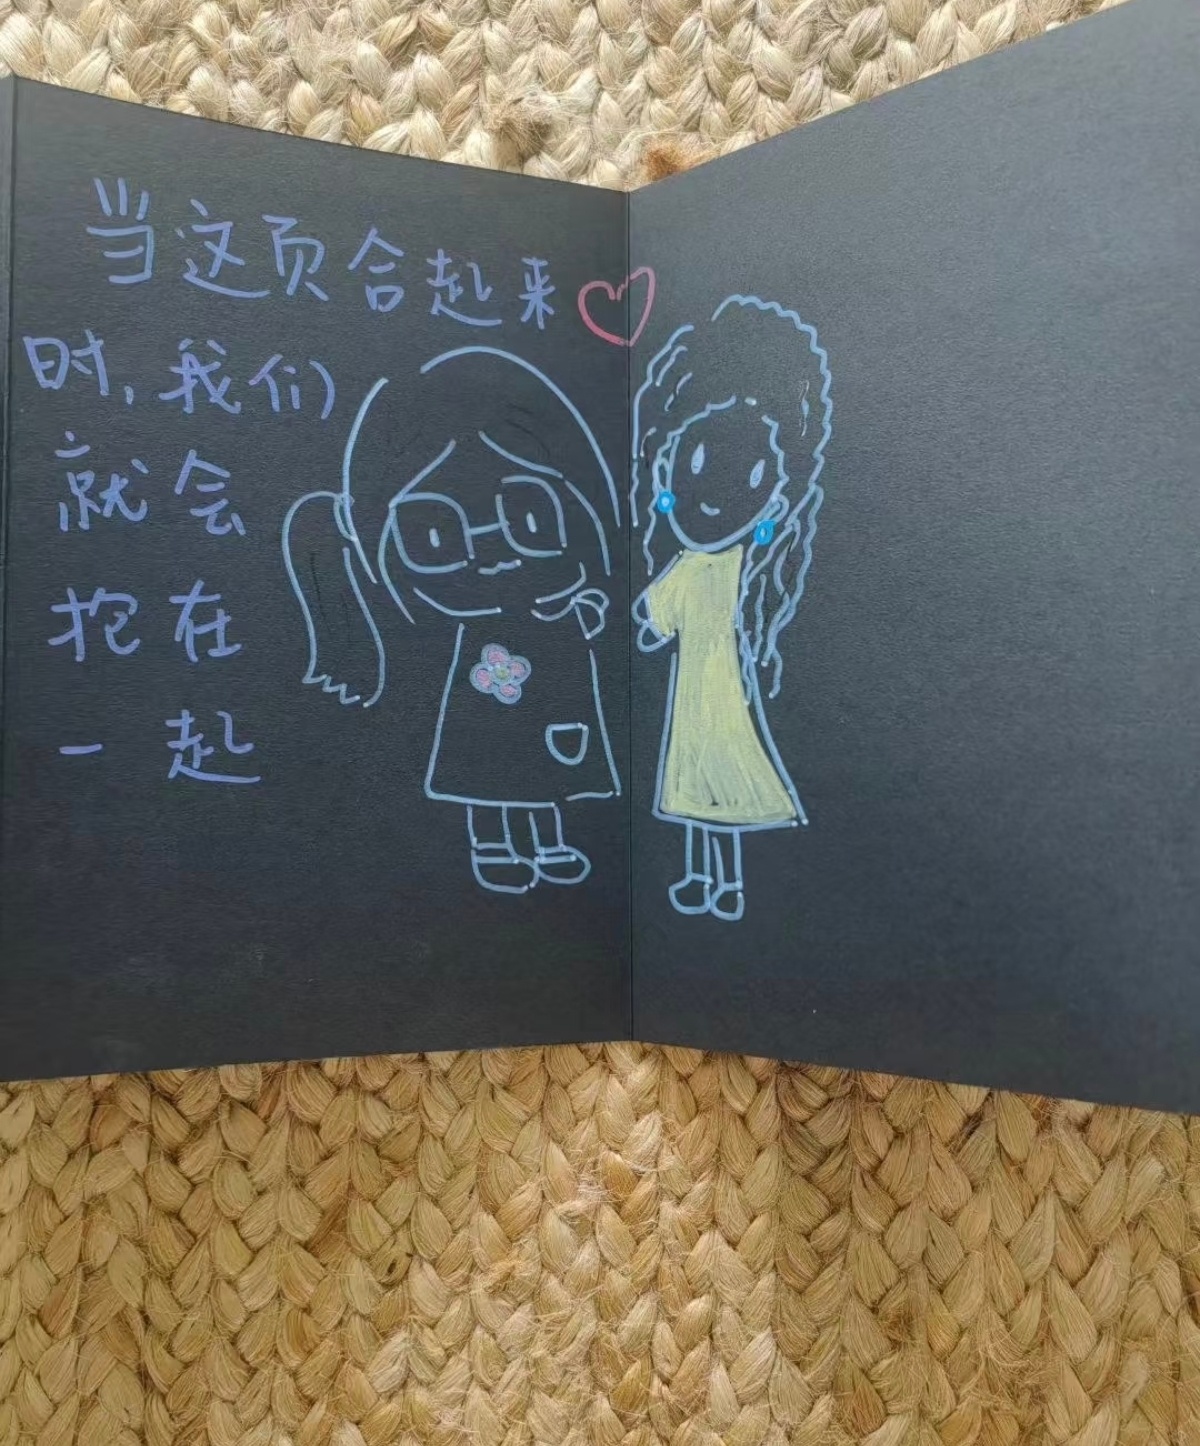 当这页合起来
时,我们
就会
抱在
一起